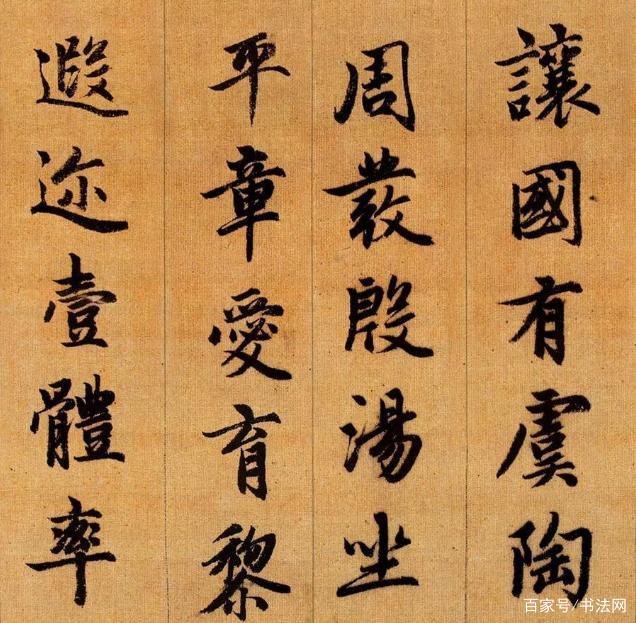 讓國有虞陶
周發殷湯坐
平章愛育黎
遐迩壹體率
百家号/书法网